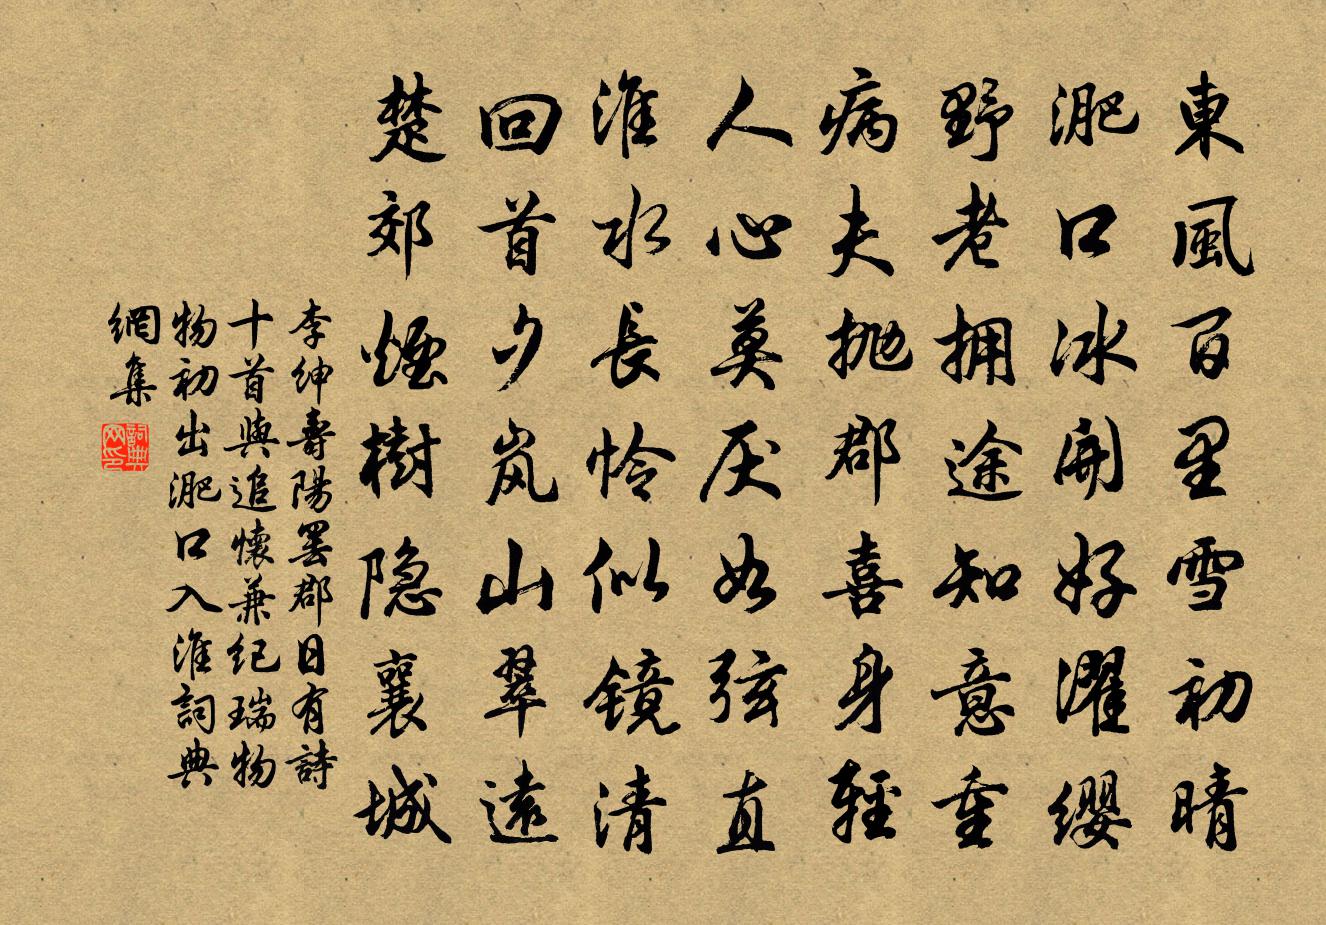 東風百里雪初晴
淝口冰開好濯缨
野老拥途知意重
病夫抛郡喜身輕
人心莫厌如弦直
淮水長怜似镜清
回首夕岚山翠遠
楚郊煙樹隐襄城
李紳壽陽罷郡日有詩
十首與追懷兼纪瑞物
物初出淝口入淮詞典
網集
詞典网印